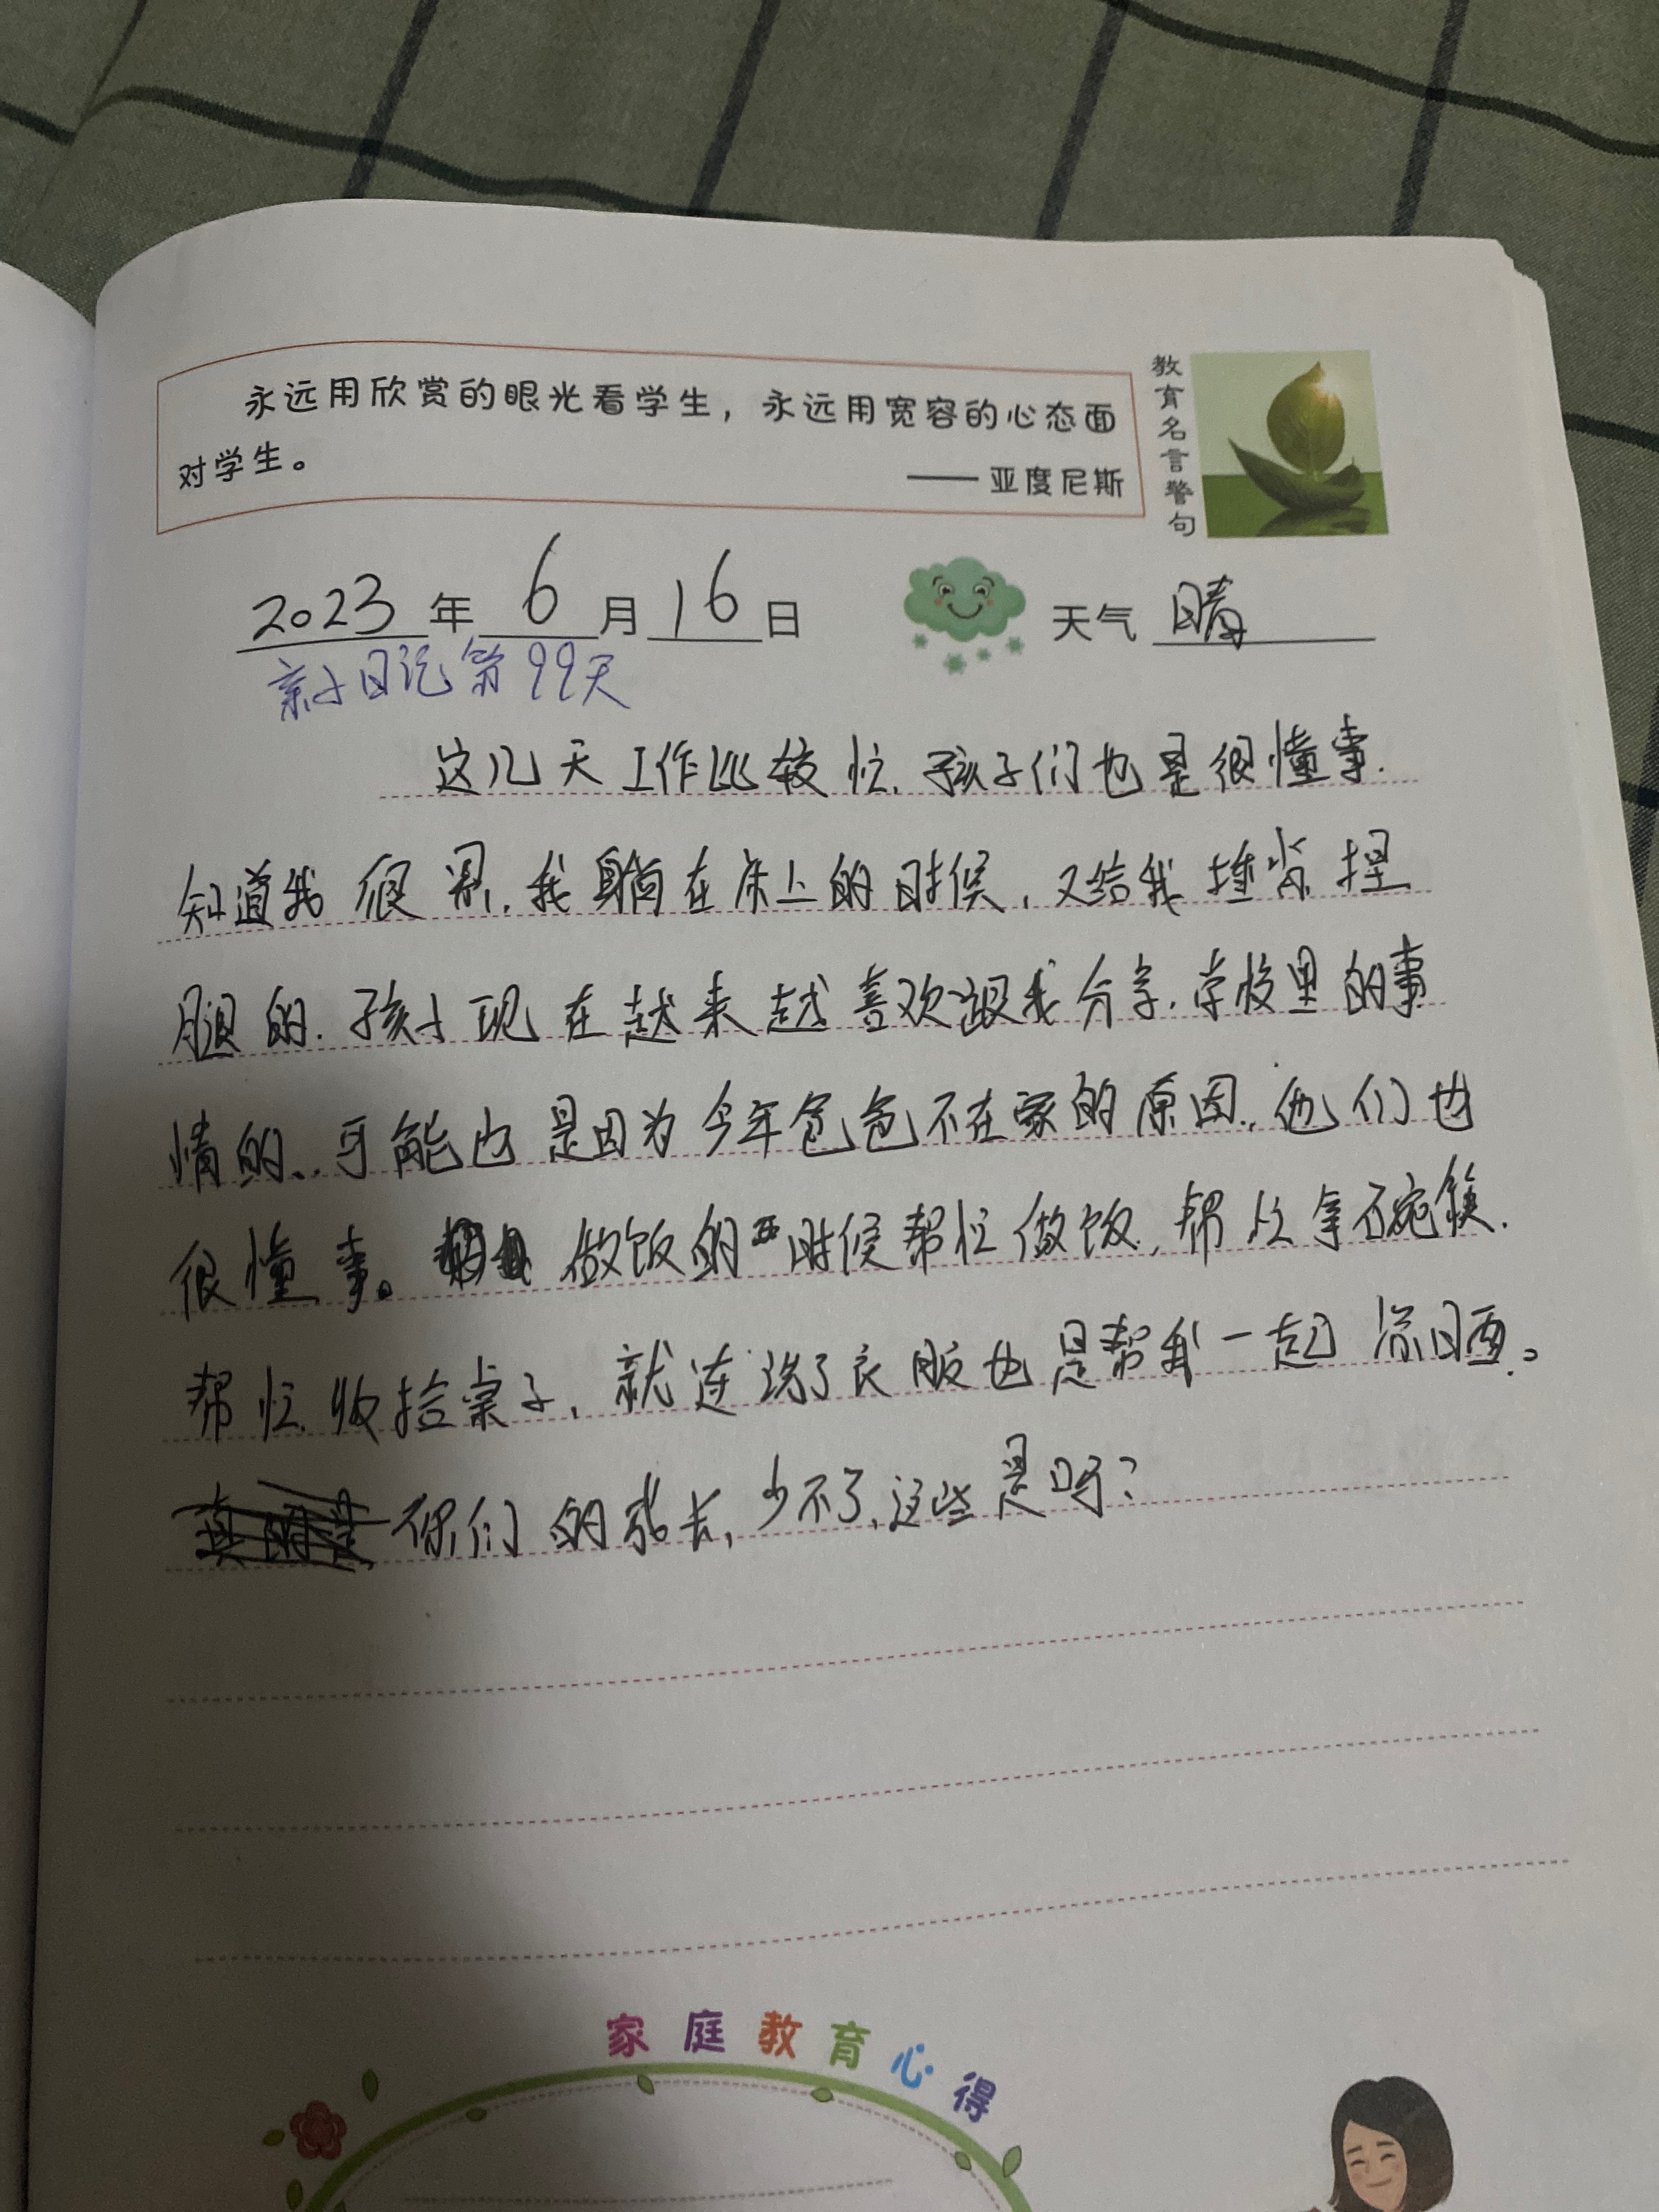 永远用欣赏的眼光看学生，永远用宽容的心态面
对学生。
——亚度尼斯
教育名言警句
2023年6月16日
天气 晴
亲子日记第99天
这几天工作比较忙，孩子们也是很懂事.
知道我很累，我躺在床上的时候，又给我捶背捏
腿的．孩子现在越来越喜欢跟我分享．学校里的事
情的．．可能也是因为今年爸爸不在家的原因．他们也
很懂事。做饭的时候帮忙做饭，帮忙拿碗筷．
帮忙收拾桌子，就连洗了衣服也是帮我一起晾晒。
你们的成长，少不了，这些是吗？
家庭教育心得